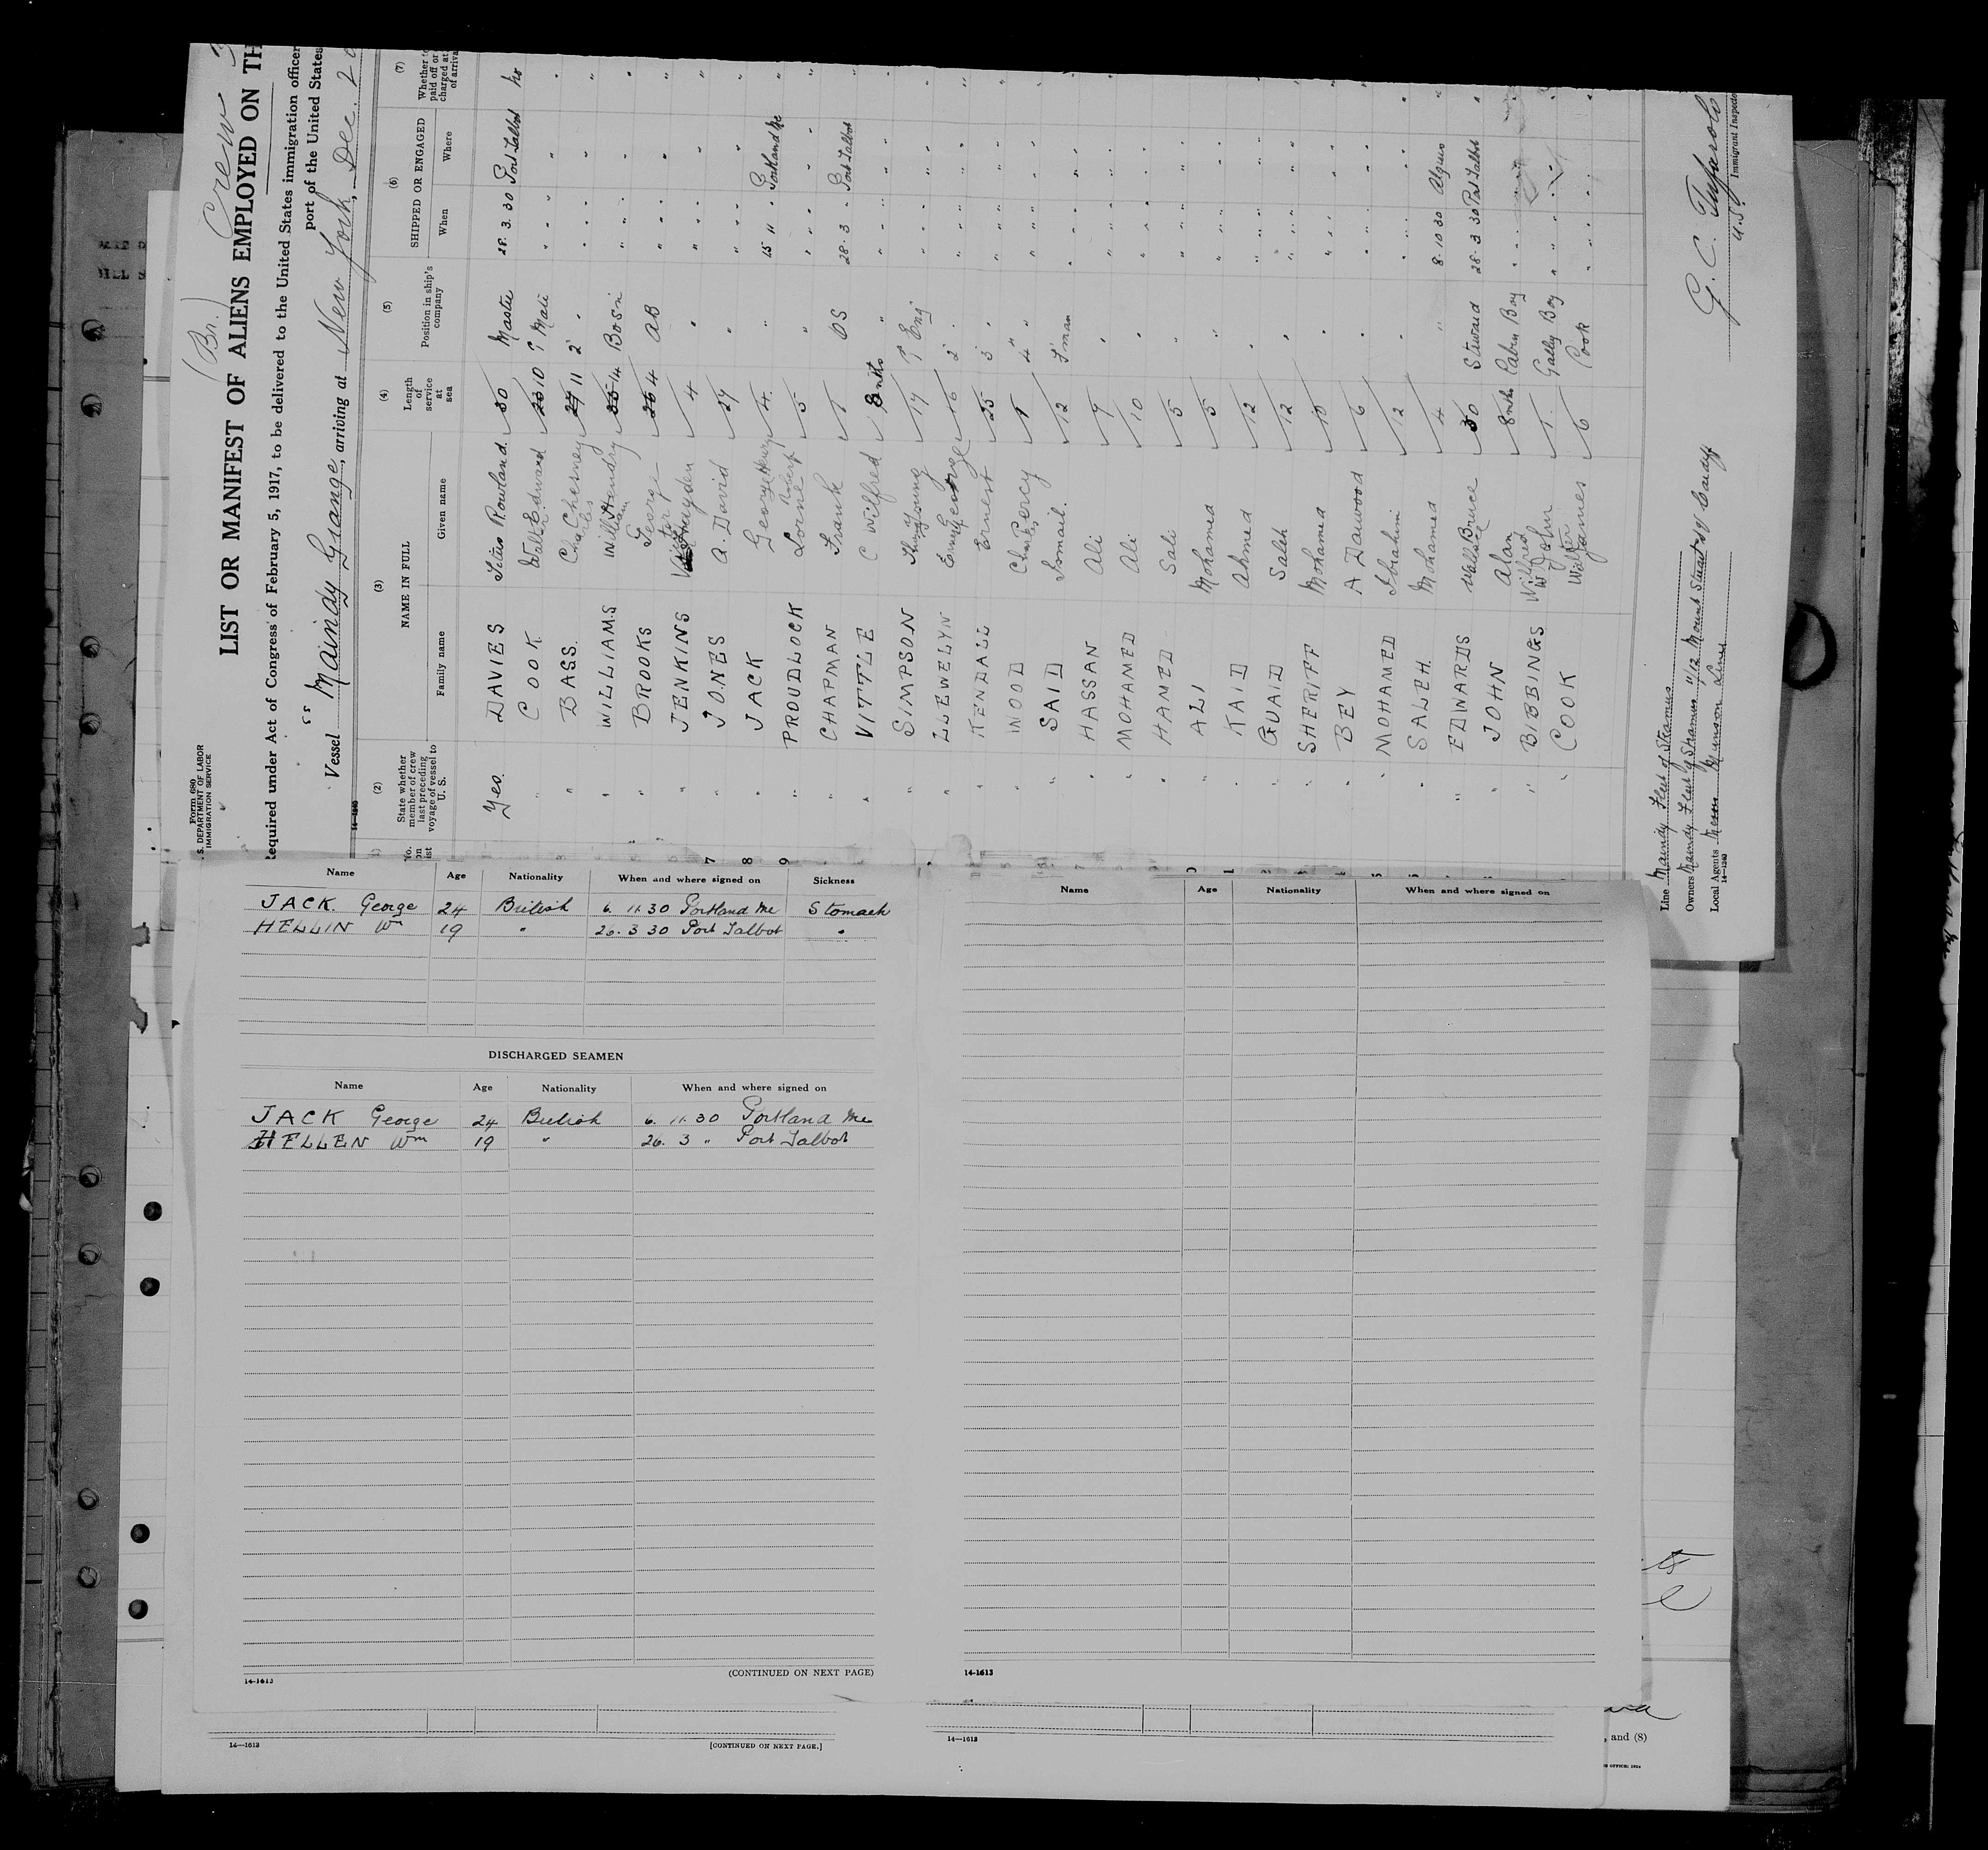 Form 680
S. DEPARTMENT OF LABOR
IMMIGRATION SERVICE
(Br.) Crew
LIST OR MANIFEST OF ALIENS EMPLOYED ON TH
equired under Act of Congress of February 5, 1917, to be delivered to the United States immigration officer
port of the United States
Vessel SS Maindy Grange, arriving at New York, Dec. 2
14-1240
(2) (3) (4) (5) (6) (7)
State whether member of crew last preceding voyage of vessel to U. S.
NAME IN FULL
Family name Given name
Length of service at sea
Position in ship's company
SHIPPED OR ENGAGED
When Where
Whether to paid off or charged at of arriva
Yes. DAVIES Titus Rowland. 30 Master 28. 3. 30 Port Talbot No
" COOK Walter Edward 10 1 Mate " " " "
" BASS. Charles Chesney 11 2 " " " " "
" WILLIAMS William Hendry 14 Bosn " " " "
" BROOKS George 4 AB " " " "
" JENKINS Hayden 4 " " " " "
" JONES A. David 27 " " " " "
" JACK George Henry 4 " 15 11 " Portland Me "
" PROUDLOCK Lorne Robert 5 " " " " "
" CHAPMAN Frank 1 OS 28. 3 " Port Talbot
" VITTLE C Wilfred 8 mths " " " "
" SIMPSON Young 17 1 Eng " " " "
" LLEWELYN George 16 2 " " " " "
" KENDALL Ernest 25 3 " " " " "
" WOOD Charles Percy 1 4 " " " " "
" SAID Ismail. 12 F'man " " " "
" HASSAN Ali 9 " " " " "
" MOHAMED Ali 10 " " " " "
" HAMED Sali 5 " " " " "
" ALI Mohamed 5 " " " " "
" KAID Ahmed 12 " " " " "
" GUAID Saleh 12 " " " " "
" SHERIFF Mohamed 10 " " " " "
" BEY A Dawood 6 " " " " "
" MOHAMED Ibrahim 12 " " " " "
" SALEH. Mohamed 4 " 8. 10 30 Algiers "
" EDWARDS Wallace Bruce 30 Steward 28. 3 30 Port Talbot "
" JOHN Alan 8 mths Cabin Boy " " " "
" BIBBINGS Wilfred John 1. Gally Boy " " " "
" COOK Walter James 6 Cook " " " "
Line Maindy Fleet of Steamers
Owners Maindy Fleet of Steamers 11/12 Mount Stuart Sq Cardiff
Local Agents Messrs Munson Line
14-1240
U.S.
Immigrant Inspecto
7
8
9
Name Age Nationality When and where signed on Sickness
JACK. George 24 British 6. 11. 30 Portland Me Stomach
HELLIN Wm 19 " 26. 3 30 Port Talbot "
DISCHARGED SEAMEN
Name Age Nationality When and where signed on
JACK George 24 British 6. 11. 30 Portland Me
HELLEN Wm 19 " 26. 3 " Port Talbot
14-1613 (CONTINUED ON NEXT PAGE)
Name Age Nationality When and where signed on
14-1613
14—1613 [CONTINUED ON NEXT PAGE.]
14—1613
, and (8)